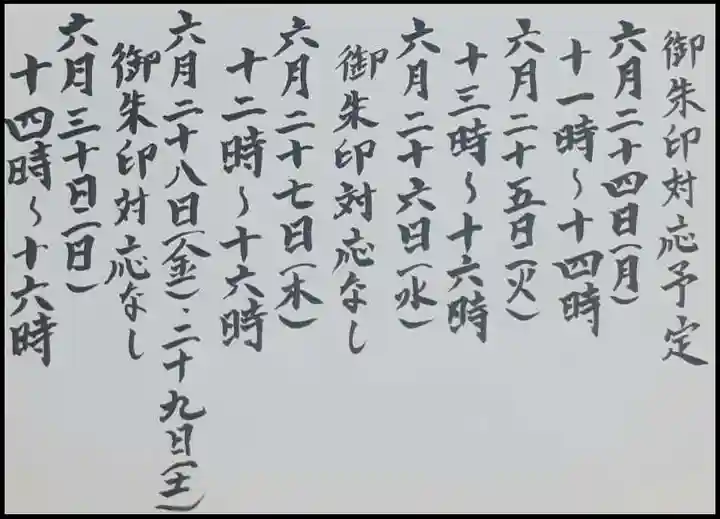 御朱印対応予定
六月二十四日(月)
十一時~十四時
六月二十五日(火)
十三時~十六時
六月二十六日(水)
御朱印対応なし
六月二十七日(木)
十二時~十六時
六月二十八日(金)・二十九日(土)
御朱印対応なし
六月三十日(日)
十四時~十六時